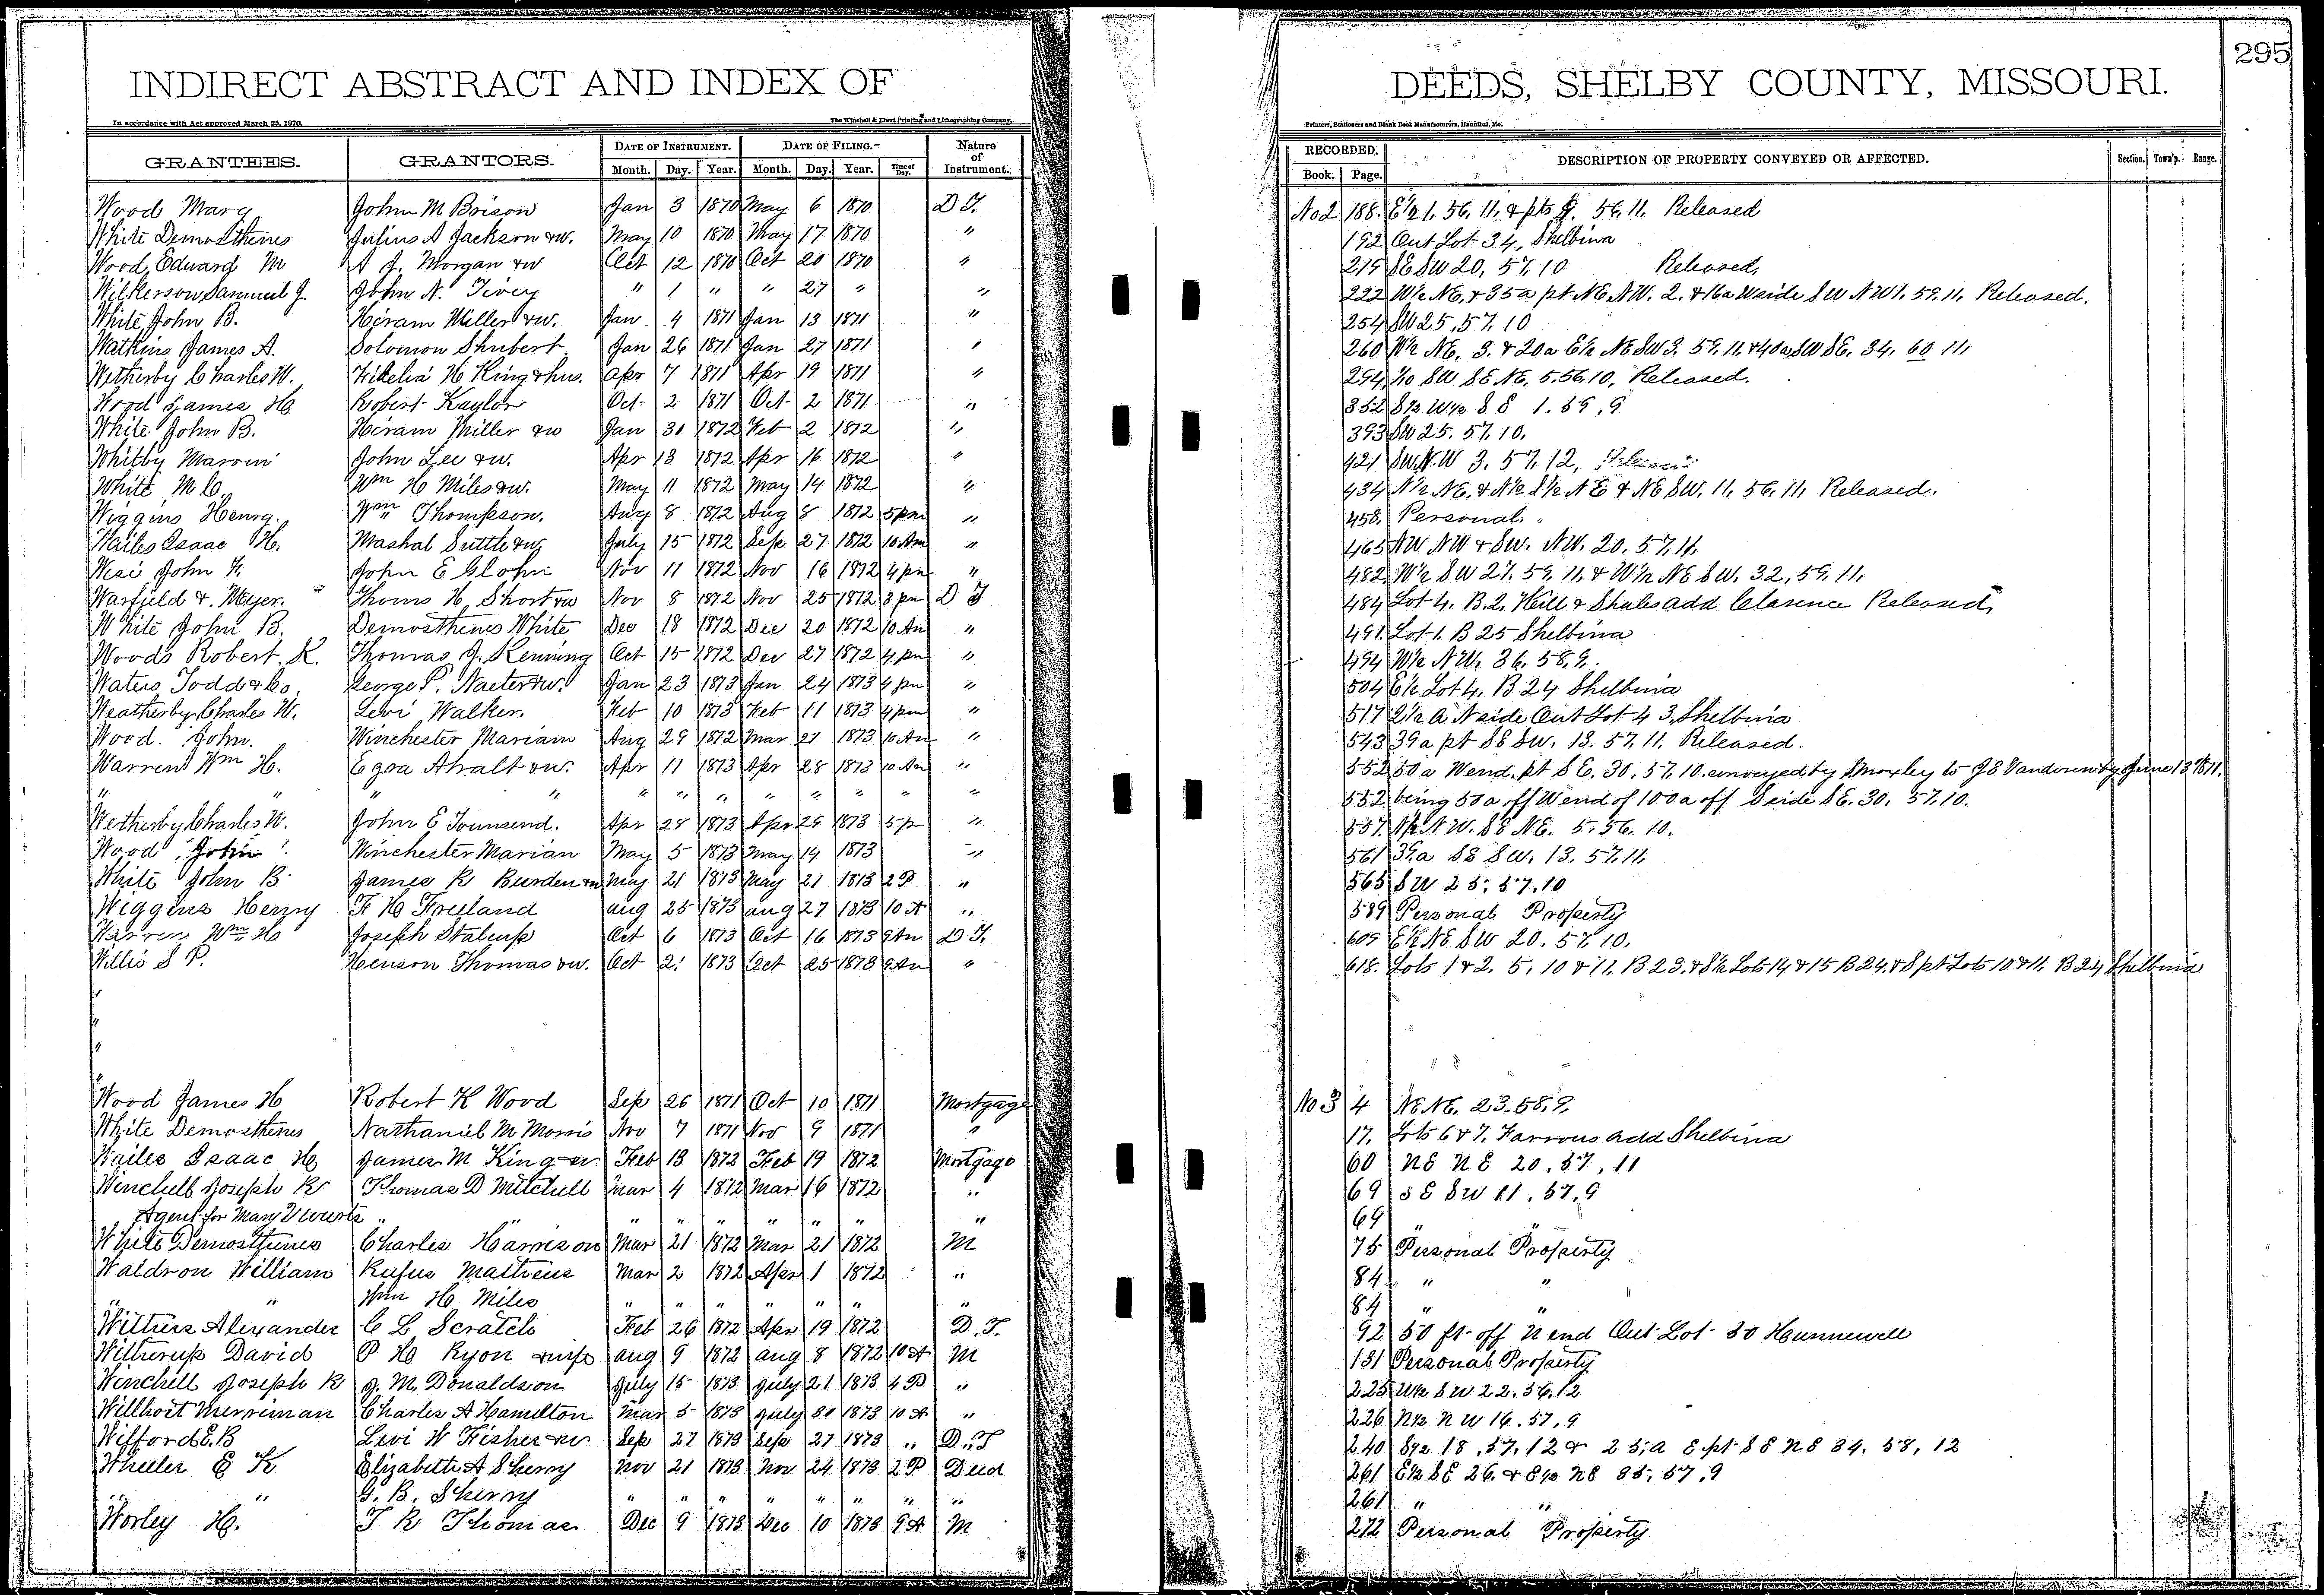 295
INDIRECT ABSTRACT AND INDEX OF DEEDS, SHELBY COUNTY, MISSOURI.
In accordance with Act approved March 25, 1870. The Winchell & Ebert Printing and Lithographing Company, Printers, Stationers and Blank Book Manufacturers, Hannibal, Mo.
GRANTEES. GRANTORS. DATE OF INSTRUMENT. DATE OF FILING.- Nature of Instrument. RECORDED. DESCRIPTION OF PROPERTY CONVEYED OR AFFECTED. Section. Town'p. Range.
Month. Day. Year. Month. Day. Year. Time of Day. Book. Page.
Wood Mary John M Brison Jan 3 1870 May 6 1870 D T. No 2 188. E½ 1. 56. 11. & pts 56. 11. Released
White Demosthenes Julius A Jackson & w. May 10 1870 May 17 1870 " 192 Out Lot 34, Shelbina
Wood, Edward M A J. Morgan & w Oct 12 1870 Oct 20 1870 " 215 SE SW 20, 57. 10 Released,
Wilkerson Samuel J. John N. Tivey " 1 " " 27 " " 222 W½ NE. & 35a pt NE NW. 2. & 16a W side SW NW 1. 59. 11. Released.
White John B. Hiram Miller & w. Jan 4 1871 Jan 13 1871 " 254 SW 25, 57. 10
Watkins James A. Solomon Shubert Jan 26 1871 Jan 27 1871 " 260 W½ NE. 3. & 20a E½ NE SW 3. 59. 11. & 40a SW SE. 34. 60 11,
Wetherby Charles W. Fidelia H King & hus. Apr 7 1871 Apr 19 1871 " 294 SW SE NE. 5. 56. 10, Released.
Wood James H Robert Kaylor Oct 2 1871 Oct 2 1871 " 352 S½ W½ S E 1. 59, 9
White John B. Hiram Miller & w Jan 30 1872 Feb 2 1872 " 393 SW 25. 57. 10.
Whitby Marvin John Lee & w. Apr 13 1872 Apr 16 1872 " 421 SW NW 3. 57. 12,
White M C. Wm H Miles & w. May 11 1872 May 14 1872 " 434 N½ NE. & N½ S½ NE & NE SW. 11. 56. 11, Released.
Wiggins Henry. Wm Thompson. Aug 8 1872 Aug 8 1872 5 pm " 458. Personal.
Wailes Isaac H. Mashal Suttle & w July 15 1872 Sep 27 1872 10 Am " 465 NW NW & SW. NW. 20. 57. 11.
John E Nov 11 1872 Nov 16 1872 4 pm " 482 W½ SW 27. 59. 11, & W½ NE SW. 32, 59. 11.
Warfield & Meyer. Thoms H. Short & w Nov 8 1872 Nov 25 1872 3 pm D T 484 Lot 4. B. 2. Hill & Shales add Clarence Released,
White John B. Demosthenes White Dec 18 1872 Dec 20 1872 10 Am " 491. Lot 1. B 25 Shelbina
Woods Robert K. Thomas J. Oct 15 1872 Dec 27 1872 4 pm " 494 W½ NW. 36. 58, 9.
Waters Todd & Co. George P. Naeter & w. Jan 23 1873 Jan 24 1873 4 pm " 504 E½ Lot 4. B 24 Shelbina
Weatherby Charles W. Levi Walker. Feb 10 1873 Feb 11 1873 4 pm " 517 2½ A N side Out Lot 43, Shelbina
Wood. John. Winchester Mariam Aug 29 1872 Mar 21 1873 10 Am " 543 39a pt SE SW. 13. 57. 11. Released.
Warren Wm H. Ezra Ahalt & w. Apr 11 1873 Apr 28 1873 10 Am " 552 50a W end. pt S E. 30. 57. 10. conveyed by Moxley to J E June 13 1871.
" " " " " " " " " " " " 552 being 50a off W end of 100a off S side SE. 30. 57. 10.
Wetherby Charles W. John E Townsend. Apr 28 1873 Apr 29 1873 5 p " 557. N½ NW. SE NE. 5. 56. 10.
Wood John Winchester Marian May 5 1873 May 14 1873 " 561 39.a SE SW. 13. 57. 11.
White John B James R Burden & w May 21 1873 May 21 1873 2 P. " 565 SW 25, 57, 10
Wiggins Henry F H Freeland Aug 25 1873 Aug 27 1873 10 A " 589 Personal Property
Warren Wm H Joseph Stalcup Oct 6 1873 Oct 16 1873 9 Am D T. 609 E½ NE SW 20. 57. 10.
Willis S P. Henson Thomas & w. Oct 2. 1873 Oct 25 1873 9 Am " 618. Lots 1 & 2. 5, 10 & 11, B 23. & S½ Lots 14 & 15 B 24. & S pt Lots 10 & 11. B 24 Shelbina
Wood James H Robert K Wood Sep 26 1871 Oct 10 1871 Mortgage No 3 4 NE NE. 23. 58, 9.
White Demosthenes Nathaniel M Morris Nov 7 1871 Nov 9 1871 " 17. Lots 6 & 7. Farrous add Shelbina
Wailes Isaac H James M King & w Feb 13 1872 Feb 19 1872 Mortgage 60 NE NE 20. 57, 11
Winchell Joseph R Thomas D Mitchell Mar 4 1872 Mar 16 1872 " 69 S E SW 11, 57, 9
Agent for Mary V " " " " " " " " 69 "
White Demosthenes Charles Harrison Mar 21 1872 Mar 21 1872 M 75 Personal Property
Waldron William Rufus Matthews Mar 2 1872 Apr 1 1872 " 84 " "
" " Wm H Miles " " " " " " " 84 " "
Withers Alexander C L Scratch Feb 26 1872 Apr 19 1872 D. T. 92 50 ft off N end Out Lot 30 Hunnewell
Witherup David P H Ryon & wife Aug 9 1872 Aug 8 1872 10 A M 131 Personal Property
Winchell Joseph R J. M. Donaldson July 15 1873 July 21 1873 4 P " 225 W½ SW 22. 56. 12
Willhoit Merriman Charles A Hamilton Mar 5 1873 July 30 1873 10 A " 226 N½ NW 16. 57, 9
Wifford E. B Levi W Fisher & w Sep 27 1873 Sep 27 1873 " D. T 240 S½ 18, 57. 12 & 25, a E pt SE NE 34. 58, 12
Wheeler E K Elizabeth A Sherry Nov 21 1873 Nov 24 1873 2 P Deed 261 E½ SE 26. & E½ NE 35, 57, 9
" " G. B. Sherry " " " " " " " " 261 " "
Worley H. T R Thomas Dec 9 1873 Dec 10 1873 9 A M 272 Personal Property